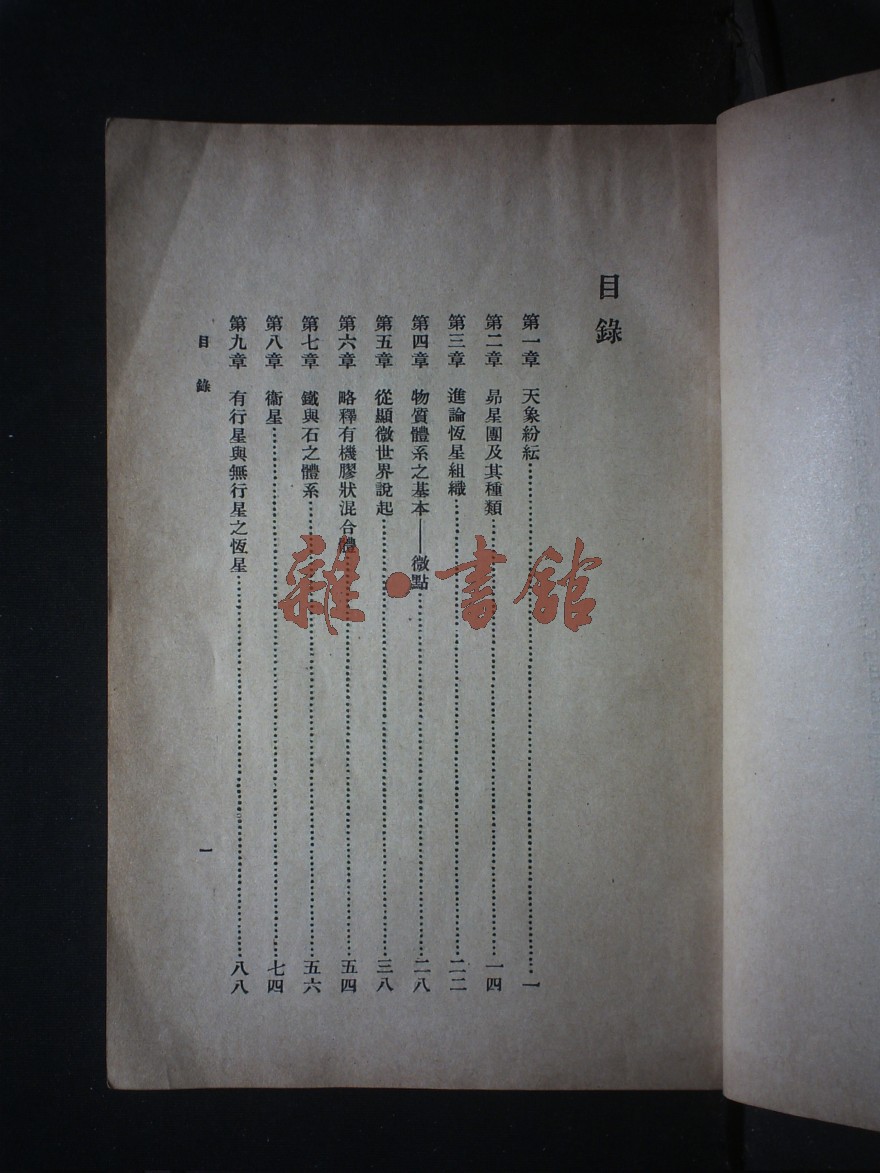 目錄
第一章 天象紛紜……一
第二章 昴星團及其種類……一四
第三章 進論恆星組織……二二
第四章 物質體系之基本——微點……二八
第五章 從顯微世界說起……三八
第六章 略釋有機膠狀混合體……五四
第七章 鐵與石之體系……五六
第八章 衞星……七四
第九章 有行星與無行星之恆星……八八
目錄
一
雜·書館